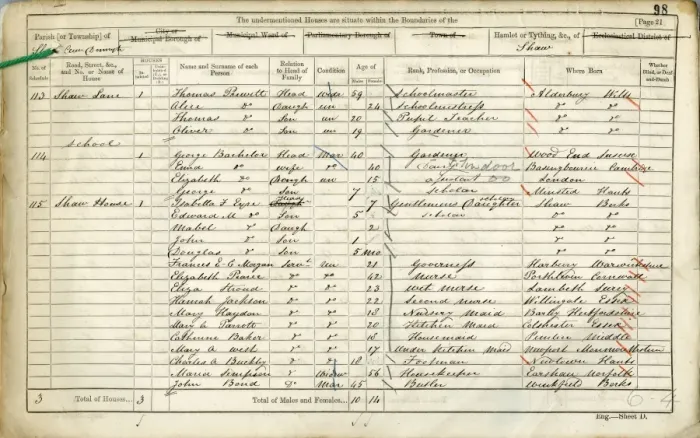 98
The undermentioned Houses are situate within the Boundaries of the
[Page 21
Parish [or Township] of
City or Municipal Borough of
Municipal Ward of
Parliamentary Borough of
Town of
Hamlet or Tything, &c., of
Ecclesiastical District of
Shaw Cum Donnington
Shaw
No. of Schedule
Road, Street, &c., and No. or Name of House
HOUSES
Name and Surname of each Person
Relation to Head of Family
Condition
Age of
Males
Females
Rank, Profession, or Occupation
Where Born
Whether Blind, or Deaf-and-Dumb
113 Shaw Lane 1 Thomas Head Widr 59 Schoolmaster Alderbury Wilts
Alice Do Daugh un 24 Schoolmistress Do Do
Thomas Do Son un 20 Pupil Teacher Do Do
Oliver Do Son un 19 Gardener Do Do
School
114 1 George Bachelor Head Mar 40 Gardener Wood End Sussex
Emma Do wife Do 40 Bassingbourne Cambridge
Elizabeth Do Daugh un 15 London
George Do Son 7 Scholar Minsted Hants
115 Shaw House 1 Isabella F. Eyre 7 Gentlemans Daughter scholar Shaw Berks
Edward M Do Son 5 scholar Do Do
Mabel Do Daugh 2 Do Do
John Do Son 1 Do Do
Douglas Do Son 5 mo Do Do
Frances E C Morgan Servt un 21 Governess Harbury Warwickshire
Elizabeth Do Do 42 Nurse Cornwall
Eliza Stroud Do Do 23 Wet Nurse Lambeth Surrey
Hannah Jackson Do Do 22 Second Nurse Willingale Essex
Mary Haydon Do Do 18 Nursery Maid Hertfordshire
Mary A Do Do 20 Kitchen Maid Colchester Essex
Catherine Baker Do Do 18 Housemaid Middle
Mary A West Do Do 17 Under Kitchen Maid Newport
Charles A Do Do 18 Footman Newtown Hants
Maria Simpson Do Widow 56 Housekeeper Earsham Norfolk
John Bond Do Mar 45 Butler Winkfield Berks
3 Total of Houses... 3 Total of Males and Females... 10 14
6-4
Eng.—Sheet D.